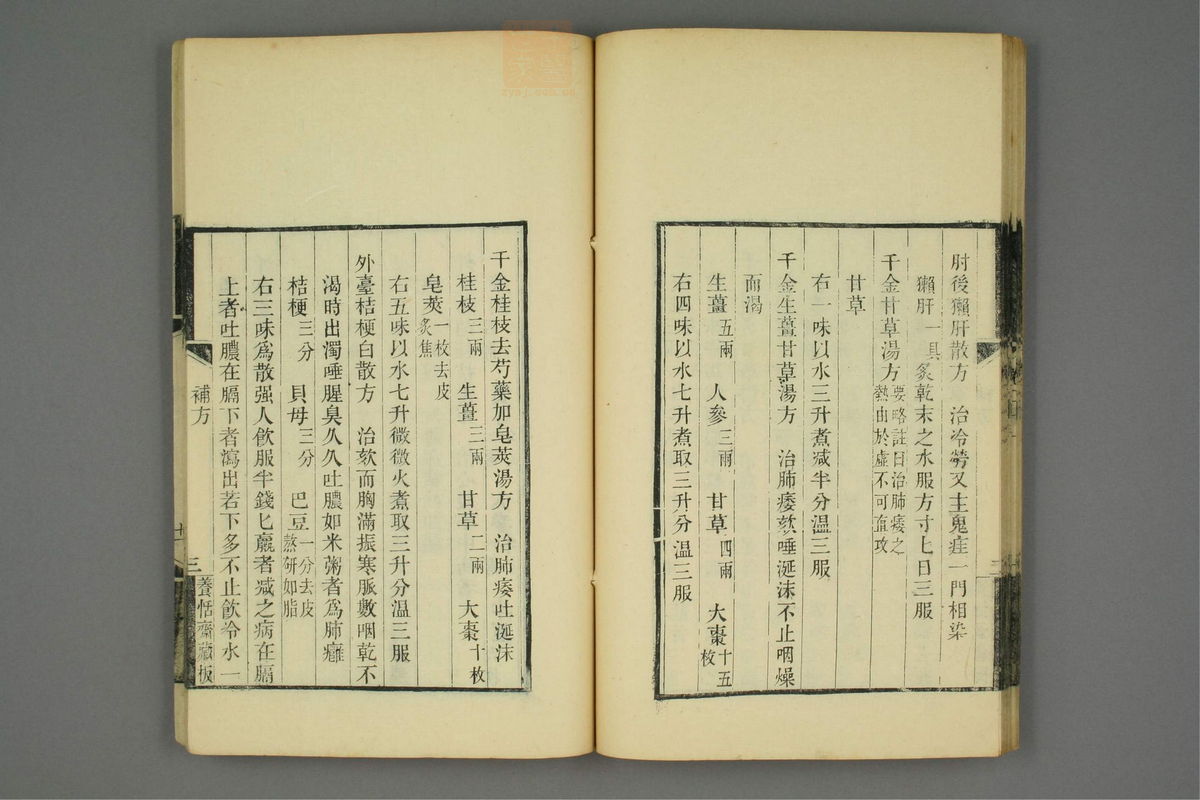 肘後獺肝散方　治冷勞又主鬼疰一門相染
獺肝一具炙乾末之水服方寸匕日三服
千金甘草湯方
要略註曰治肺痿之
熱由於虛不可直攻
甘草
右一味以水三升煮减半分温三服
千金生薑甘草湯方　治肺痿欬唾涎沫不止咽燥
而渴
生薑五兩　人參三兩　甘草四兩　大棗十五枚
右四味以水七升煮取三升分温三服
千金桂枝去芍藥加皂莢湯方　治肺痿吐涎沫
桂枝三兩　生薑三兩　甘草二兩　大棗十枚
皂莢一枚去皮炙焦
右五味以水七升微微火煮取三升分温三服
外臺桔梗白散方　治欬而胸滿振寒脈數咽乾不
渴時出濁唾腥臭久久吐膿如米粥者爲肺癰
桔梗三分　貝母三分　巴豆一分去皮熬研如脂
右三味爲散强人飲服半錢匕羸者减之病在膈
上者吐膿在膈下者瀉出若下多不止飲冷水一
補方
十一
三
養恬齋藏板